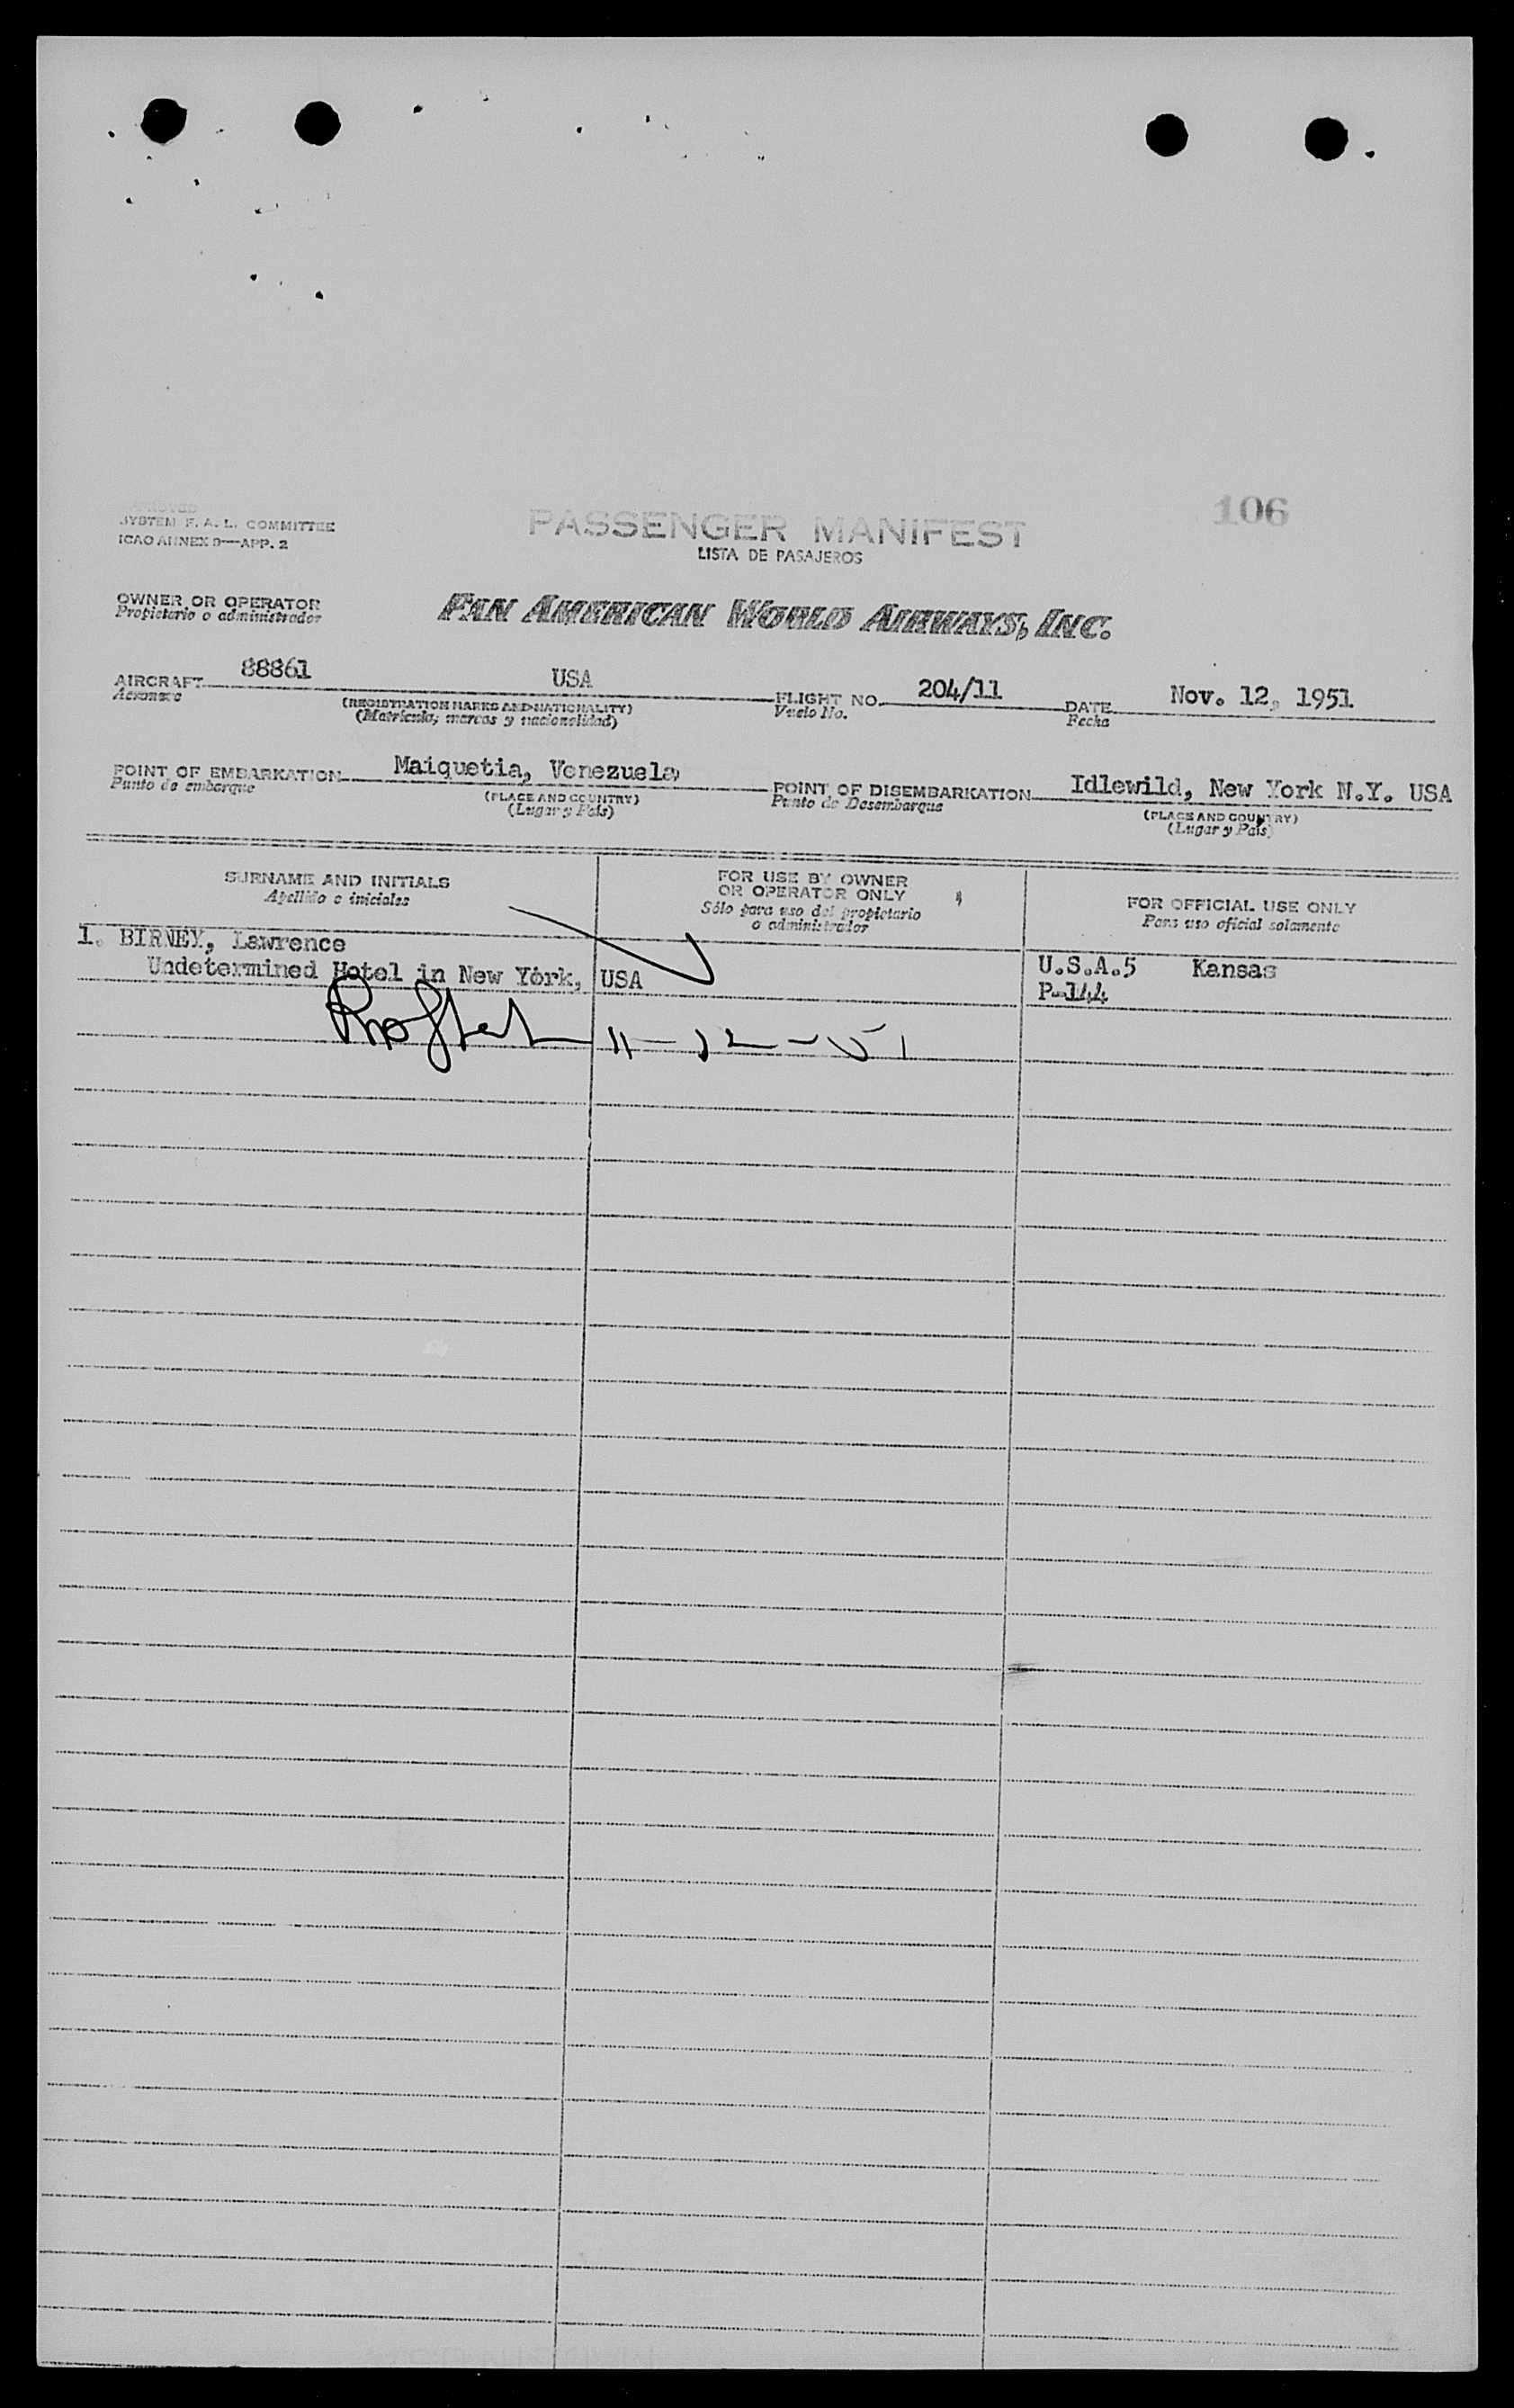 SYSTEM F. A. L. COMMITTEE
ICAO ANNEX 9—APP. 2
PASSENGER MANIFEST
LISTA DE PASAJEROS
106
OWNER OR OPERATOR
Propietario o administrador
PAN AMERICAN WORLD AIRWAYS, INC.
AIRCRAFT 88861 USA FLIGHT NO. 204/11 DATE Nov. 12, 1951
Aeronave (REGISTRATION MARKS AND NATIONALITY) Vuelo No. Fecha
(Matrícula, marcas y nacionalidad)
POINT OF EMBARKATION Maiquetia, Venezuela POINT OF DISEMBARKATION Idlewild, New York N.Y. USA
Punto de embarque (PLACE AND COUNTRY) Punto de Desembarque (PLACE AND COUNTRY)
(Lugar y País) (Lugar y País)
SURNAME AND INITIALS
Apellido e iniciales
FOR USE BY OWNER
OR OPERATOR ONLY
Sólo para uso del propietario
o administrador
FOR OFFICIAL USE ONLY
Para uso oficial solamente
1. BIRNEY, Lawrence
Undetermined Hotel in New York, USA
U.S.A.5 Kansas
P-144
11-12-51